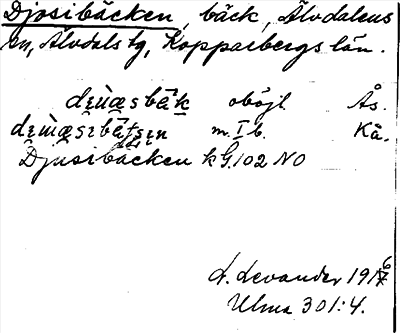 Djosibäcken, bäck, Älvdalens
sn, Älvdals tg, Kopparbergs län.
oböjl. Ås.
m. I b. Kå.
Djusibäcken k G. 102 NO
L. Levander 1916
Ulma 301:4.